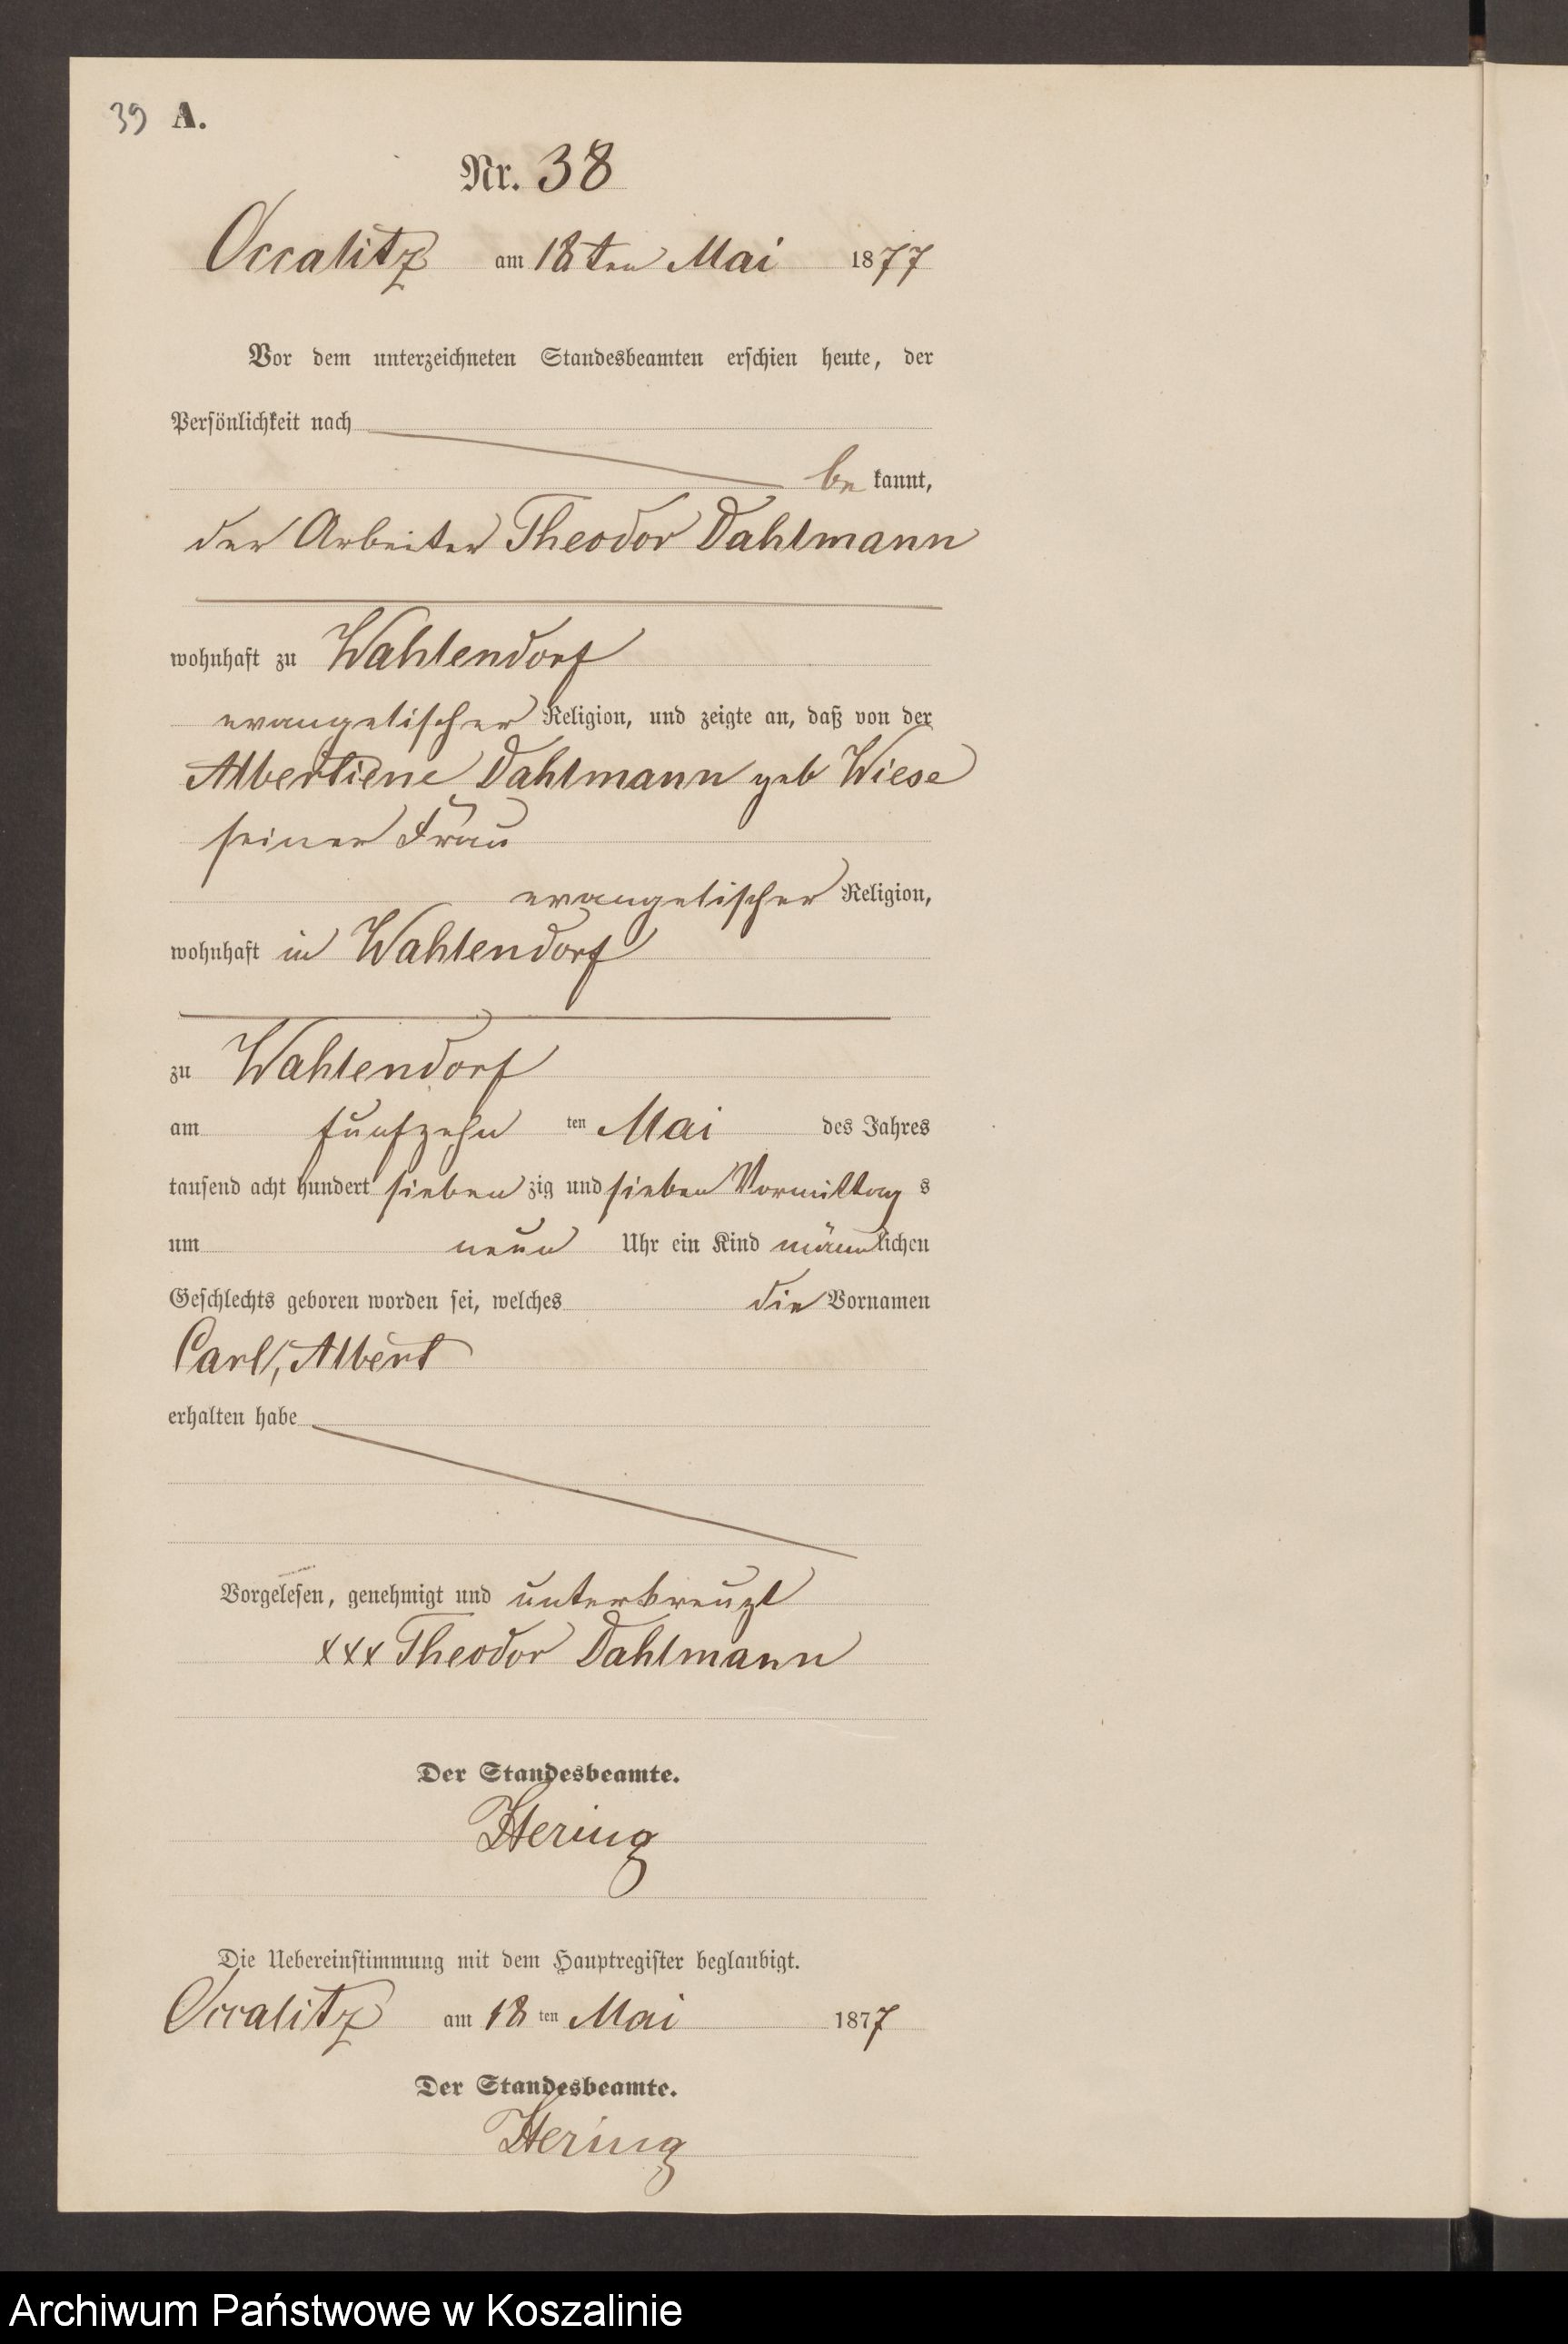 39 A.
Nr. 38
Occalitz am 18ten Mai 1877
Vor dem unterzeichneten Standesbeamten erschien heute, der
Persönlichkeit nach
be kannt,
der Arbeiter Theodor Dahlmann
wohnhaft zu Wahlendorf
evangelischer Religion, und zeigte an, daß von der
Albertiene Dahlmann geb Wiese
seiner Frau
evangelischer Religion,
wohnhaft in Wahlendorf
zu Wahlendorf
am funfzehn ten Mai des Jahres
tausend acht hundert sieben zig und sieben Vormittag s
um neun Uhr ein Kind männlichen
Geschlechts geboren worden sei, welches die Vornamen
Carl, Albert
erhalten habe
Vorgelesen, genehmigt und unterkreuzt
xxx Theodor Dahlmann
Der Standesbeamte.
Hering
Die Uebereinstimmung mit dem Hauptregister beglaubigt.
Occalitz am 18 ten Mai 1877
Der Standesbeamte.
Hering
Archiwum Państwowe w Koszalinie